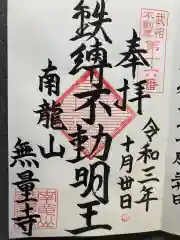 武相
不動尊
第十六番
奉拝
令和三年
十月廿日
鉄縛不動明王
南龍山
無量寺